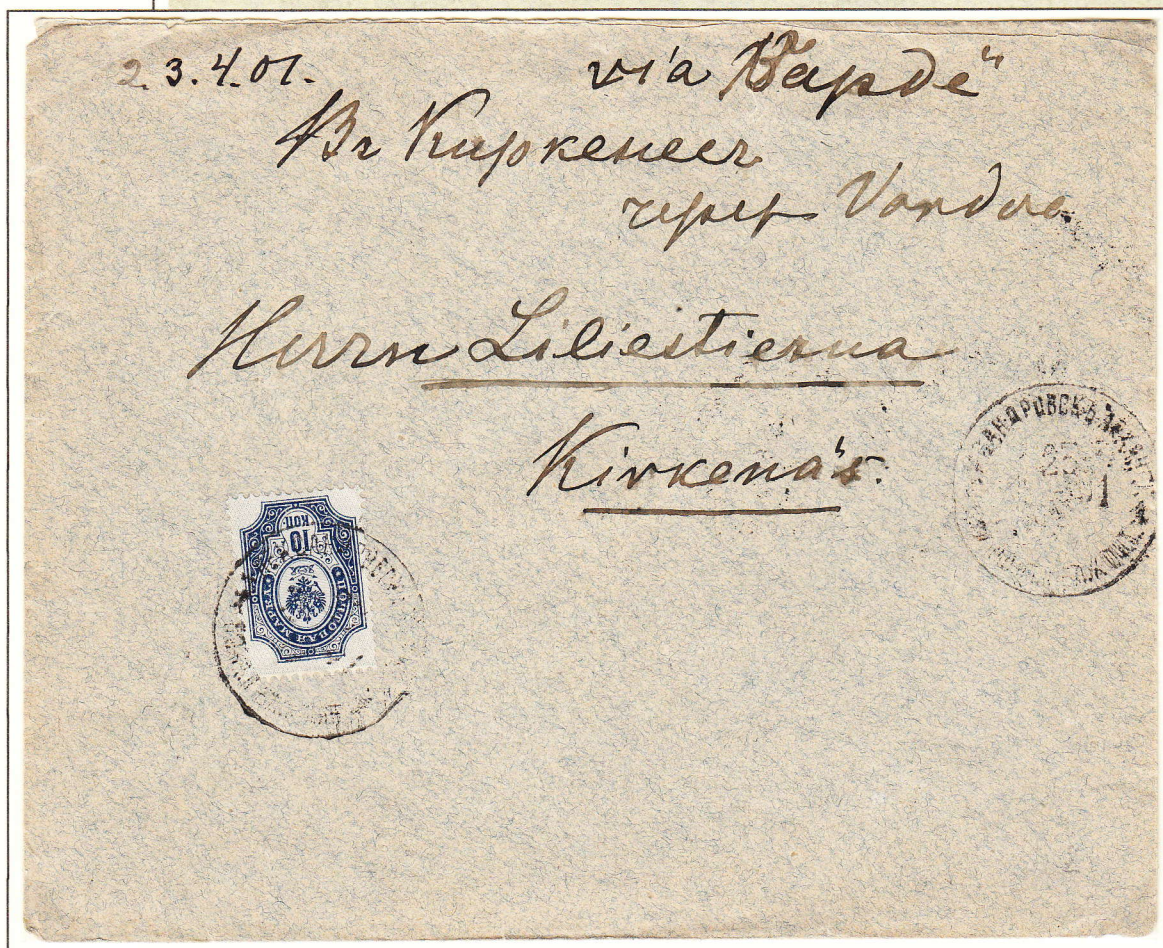 2.3.4.01.
via Вардё
Въ Киркенесъ
черезъ Vardoe
Herrn Liliestierna
Kirkenäs.
10 КОП.
ПОЧТОВАЯ МАРКА